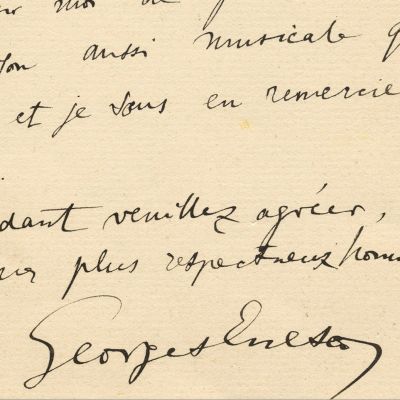 aussi musicale
et je vous en remercie
dant veuillez agréer,
plus respectueux hom
Georges Enesco